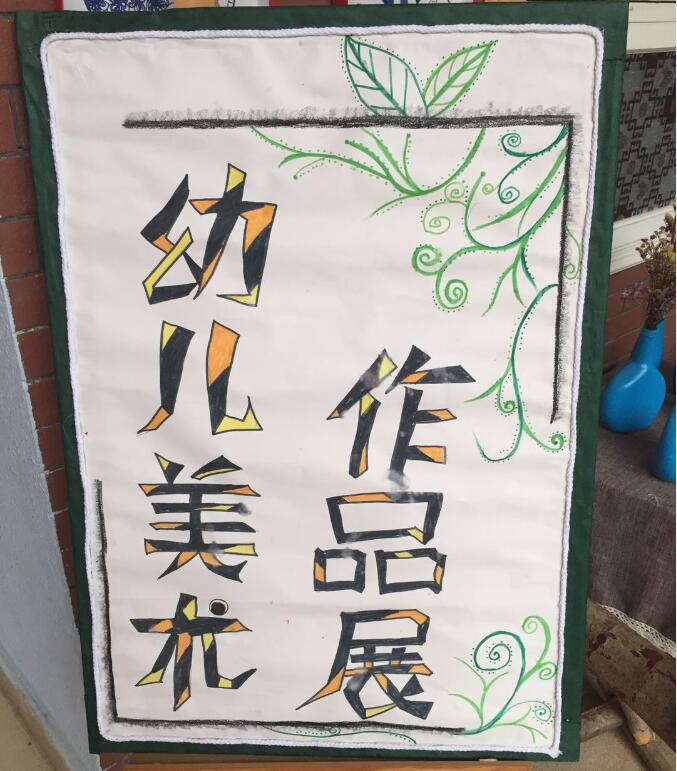 幼儿美术
作品展